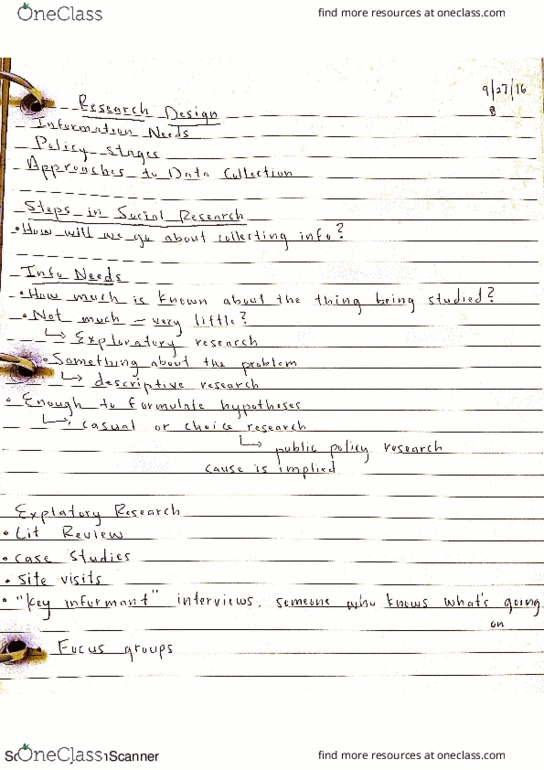 OneClass
find more resources at oneclass.com
9/27/16
8
Research Design
Information Needs
Policy stages
Approaches to Data Collection
Steps in Social Research
• How will we go about collecting info?
Info Needs
• How much is known about the thing being studied?
• Not much – very little?
↳ Exploratory research
• Something about the problem
↳ descriptive research
• Enough to formulate hypotheses
↳ casual or choice research
↳ public policy research
cause is implied
Explatory Research
• Lit Review
• case studies
• site visits
• "key informant" interviews, someone who knows what's going
on
Focus groups
OneClass
Scanner
find more resources at oneclass.com